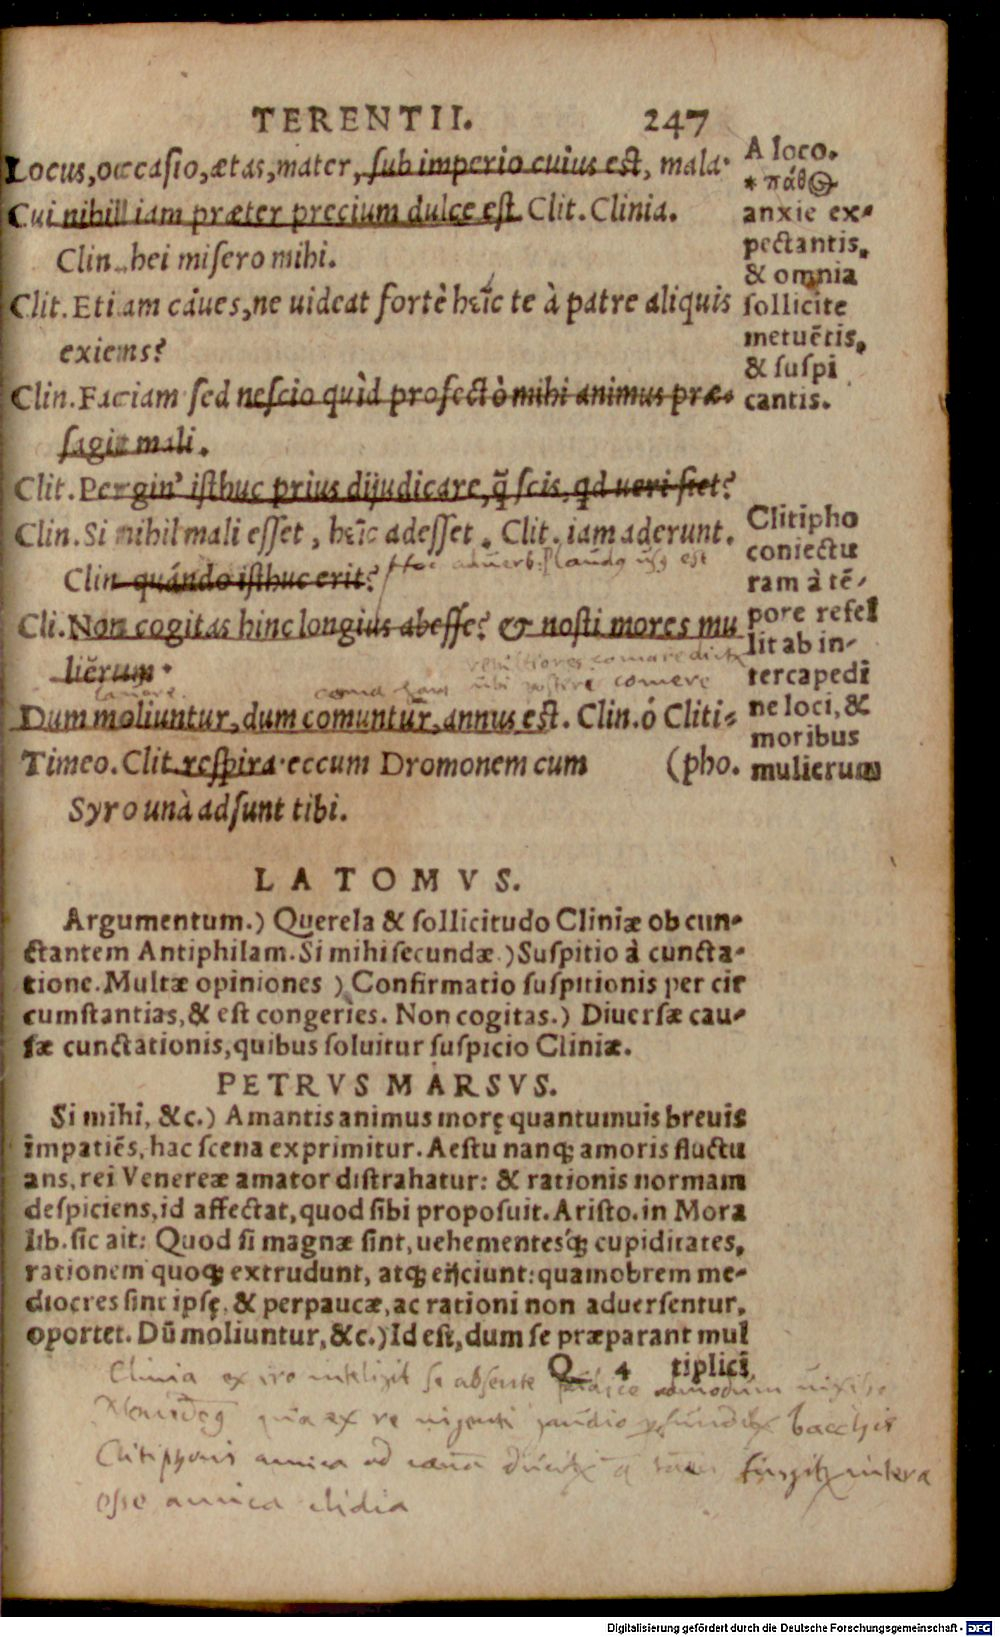 TERENTII. 247
Locus, occasio, ætas, mater, sub imperio cuius est, mala·
Cui nihil iam præter precium dulce est Clit. Clinia.
Clin. hei misero mihi.
Clit. Etiam cáues, ne uideat fortè heic te à patre aliquis
exiens?
Clin. Faciam sed nescio quìd profectò mihi animus præ-
sagit mali.
Clit. Pergin' isthuc prius dijudicare, q̃ scis, qd ueri siet?
Clin. Si nihil mali esset, heic adesset. Clit. iam aderunt.
Clin quándo isthuc erit?
hoc aduerb:
est
Cli. Non cogitas hinc longius abesse? & nosti mores mu
liĕrum·
comere
Dum moliuntur, dum comuntur, annus est. Clin. ó Cliti-
Timeo. Clit. respira·eccum Dromonem cum (pho.
Syro unà adsunt tibi.
A loco.
* πάθος
anxie ex-
pectantis,
& omnia
sollicite
metuẽtis,
& suspi
cantis.
Clitipho
coniectu
ram à tẽ-
pore refel
lit ab in-
tercapedĩ
ne loci, &
moribus
mulierum
LATOMVS.
Argumentum.) Querela & sollicitudo Cliniæ ob cun-
ctantem Antiphilam. Si mihi secundæ.) Suspitio à cuncta-
tione. Multæ opiniones ) Confirmatio suspitionis per cir
cumstantias, & est congeries. Non cogitas.) Diuersæ cau-
sæ cunctationis, quibus soluitur suspicio Cliniæ.
PETRVS MARSVS.
Si mihi, &c.) Amantis animus morę quantumuis breuis
impatiẽs, hac scena exprimitur. Aestu nanq; amoris fluctu
ans, rei Venereæ amator distrahatur: & rationis normam
despiciens, id affectat, quod sibi proposuit. Aristo. in Mora
lib. sic ait: Quod si magnæ sint, uehementesq́; cupiditates,
rationem quoq; extrudunt, atq; eijciunt: quamobrem me-
diocres sint ipsę, & perpaucæ, ac rationi non aduersentur,
oportet. Dũ moliuntur, &c.) Id est, dum se præparant mul
Q 4 tiplici
Clinia ex iro intelligit se absente
quia ex re bacchis
Clitiphonis amica ad
esse amica clidia
Digitalisierung gefördert durch die Deutsche Forschungsgemeinschaft - DFG